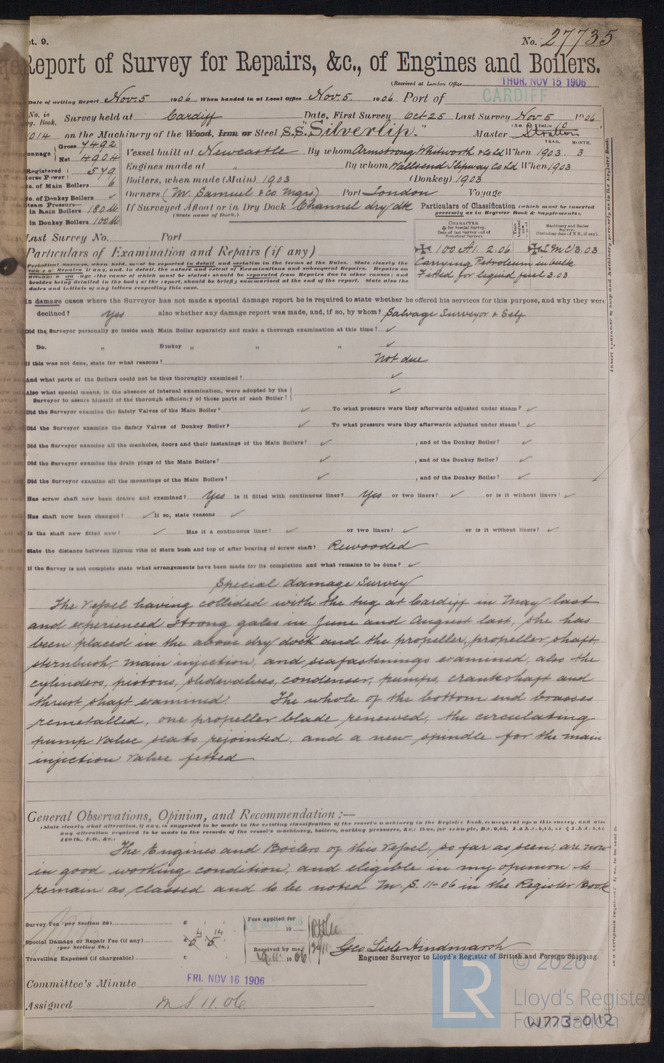 No. 27735
Report of Survey for Repairs, &c., of Engines and Boilers.
(Received at London Office THUR. NOV 15 1906
Date of writing Report Nov. 5 1906 When handed in at Local Office Nov 5. 1906 Port of CARDIFF
No. in Reg. Book. Survey held at Cardiff Date, First Survey Oct 25 Last Survey Nov 5 1906
on the Machinery of the Wood, Iron or Steel S.S. "Silverlip." Master Stratton
Gross 7492 Vessel built at Newcastle By whom Armstrong Whitworth & Co Ld When 1903. 3
Net 4904 Engines made at " By whom Wallsend Slipway Co Ld When 1903
Registered 549 Boilers, when made (Main) 1903 (Donkey) 1903
No. of Main Boilers 6 Owners (M. Samuel & Co Mgrs) Port London Voyage
No. of Donkey Boilers
in Main Boilers 180 lb If Surveyed Afloat or in Dry Dock Channel dry dk Particulars of Classification (which must be inserted
(State name of Dock.) precisely as in Register Book & Supplements.
in Donkey Boilers 100 lb
Last Survey No. Port 100 A1. 2.06 LMC 3.03
Particulars of Examination and Repairs (if any) Carrying Petroleum in bulk
Fitted for liquid fuel 3.03
In damage cases where the Surveyor has not made a special damage report he is required to state whether he offered his services for this purpose, and why they were
declined? Yes also whether any damage report was made, and, if so, by whom? Salvage Surveyor & Self
Did the Surveyor personally go inside each Main Boiler separately and make a thorough examination at this time?
Do. " Donkey " " "
If this was not done, state for what reasons? Not due
And what parts of the Boilers could not be thus thoroughly examined?
Also what special means, in the absence of internal examination, were adopted by the
Surveyor to assure himself of the thorough efficiency of those parts of each Boiler?
Did the Surveyor examine the Safety Valves of the Main Boiler? To what pressure were they afterwards adjusted under steam?
Did the Surveyor examine the Safety Valves of Donkey Boiler? To what pressure were they afterwards adjusted under steam?
Did the Surveyor examine all the manholes, doors and their fastenings of the Main Boilers? , and of the Donkey Boiler?
Did the Surveyor examine the drain plugs of the Main Boilers? , and of the Donkey Boiler?
Did the Surveyor examine all the mountings of the Main Boilers? , and of the Donkey Boiler?
Has screw shaft now been drawn and examined? Yes Is it fitted with continuous liner? Yes or two liners? or is it without liners?
Has shaft now been changed? If so, state reasons
Is the shaft now fitted new? Has it a continuous liner? or two liners? or is it without liners?
State the distance between lignum vitæ of stern bush and top of after bearing of screw shaft? Rewooded
If the Survey is not complete state what arrangements have been made for its completion and what remains to be done?
Special damage Survey
The Vessel having collided with the tug at Cardiff in May last
and experienced strong gales in June and August last, she has
been placed in the above dry dock and the propeller, propeller shaft
sternbush, main injection, and seafastenings examined, also the
cylinders, pistons, slidevalves, condenser, pumps, crankshaft and
thrust shaft examined. The whole of the bottom end brasses
remetalled, one propeller blade renewed, the circulating
pump valve seats rejointed, and a new spindle for the main
injection valve fitted
General Observations, Opinion, and Recommendation:—
The Engines and Boilers of this Vessel, so far as seen, are now
in good working condition, and eligible in my opinion to
remain as classed and to be noted M.S. 11-06 in the Register Book
Survey Fee (per Section 28) £ Fees applied for
Special Damage or Repair Fee (if any) £ 5. 5.
(per Section 28.) Received by me,
Travelling Expenses (if chargeable) £ Geo Lisle Hindmarsh
Engineer Surveyor to Lloyd's Register of British and Foreign Shipping.
Committee's Minute FRI. NOV 16 1906
Assigned M S 11.06
LR © 2020
Lloyd's Register
Foundation
W773-0112